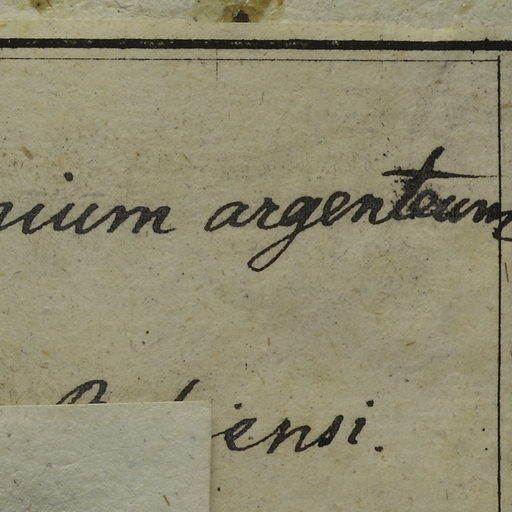 nium argenteum
iensi.